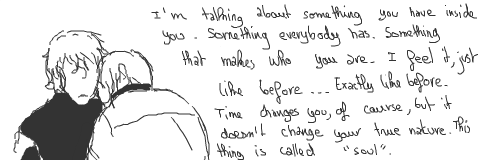 I'm talking about something you have inside
you. Something everybody has. Something
that makes who you are. I feel it, just
like before ... Exactly like before.
Time changes you, of course, but it
doesn't change your true nature. This
thing is called "soul".